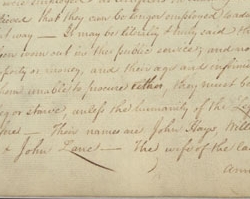 lieved that they can be longer employed to adv
it way — It may be literally & truly said th
been worn out in the public service; and no
operty or money, and their age and infirmi
them unable to procure either, they must be
beg or starve, unless the humanity of the
Their names are John Hays, Will
& John Lane — The wife of the la